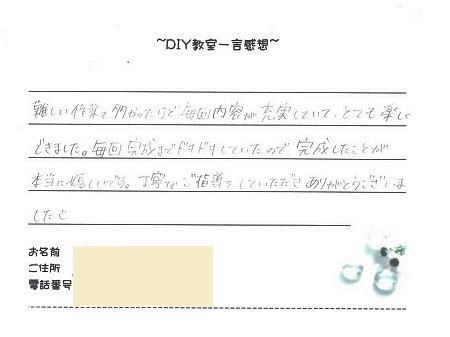 ~DIY教室一言感想~
難しい作業も多かったけど毎回内容が充実していて、とても楽しく
できました。毎回完成までドキドキしていたので完成したことが
本当に嬉しいです。丁寧なご指導をしていただきありがとうございま
した
お名前
ご住所
電話番号